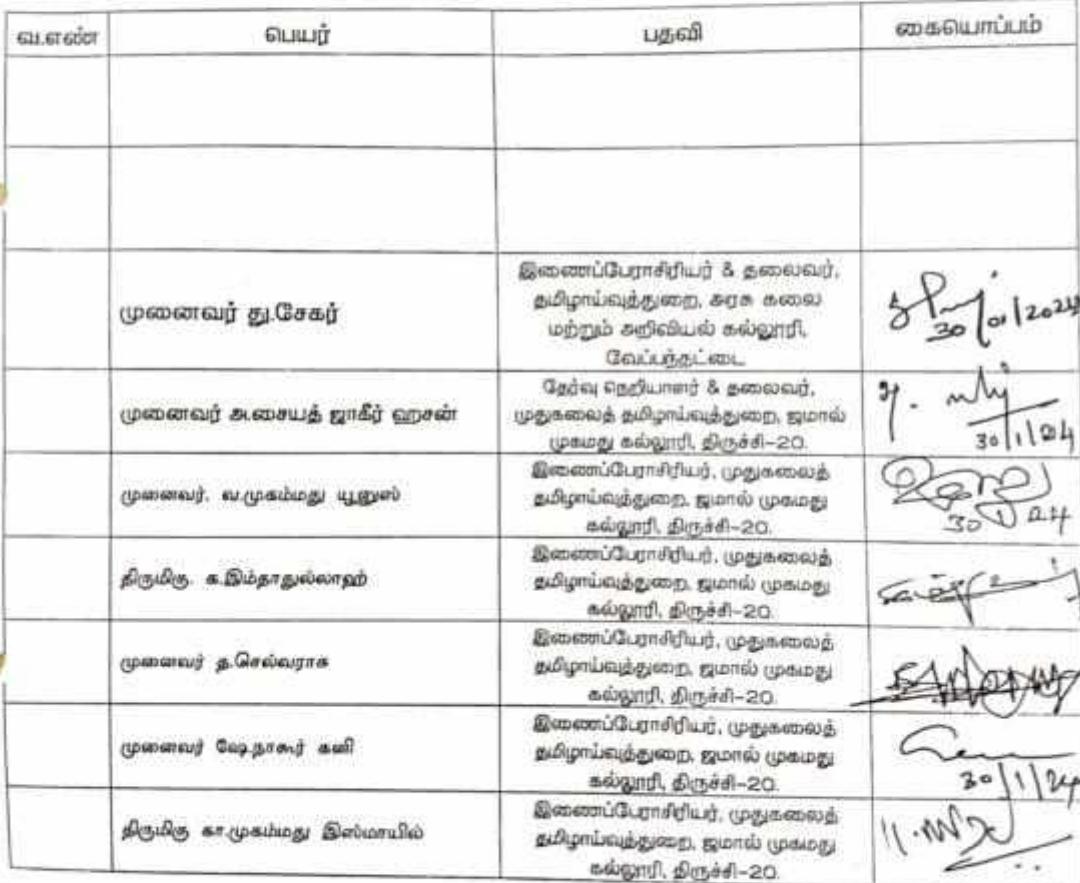 வ.எண் பெயர் பதவி கையொப்பம்
முனைவர் து.சேகர்
இணைப்பேராசிரியர் & தலைவர்,
தமிழாய்வுத்துறை, அரசு கலை
மற்றும் அறிவியல் கல்லூரி,
வேப்பந்தட்டை
30/01/2024
முனைவர் அ.சையத் ஜாகீர் ஹசன்
தேர்வு நெறியாளர் & தலைவர்,
முதுகலைத் தமிழாய்வுத்துறை, ஜமால்
முகமது கல்லூரி, திருச்சி-20.
30/1/24
முனைவர். வ.முகம்மது யூனுஸ்
இணைப்பேராசிரியர், முதுகலைத்
தமிழாய்வுத்துறை, ஜமால் முகமது
கல்லூரி, திருச்சி-20.
திருமிகு. க.இம்தாதுல்லாஹ்
இணைப்பேராசிரியர், முதுகலைத்
தமிழாய்வுத்துறை, ஜமால் முகமது
கல்லூரி, திருச்சி-20.
முனைவர் த.செல்வராசு
இணைப்பேராசிரியர், முதுகலைத்
தமிழாய்வுத்துறை, ஜமால் முகமது
கல்லூரி, திருச்சி-20.
முனைவர் ஷே.நாகூர் கனி
இணைப்பேராசிரியர், முதுகலைத்
தமிழாய்வுத்துறை, ஜமால் முகமது
கல்லூரி, திருச்சி-20.
30/1/24
திருமிகு கா.முகம்மது இஸ்மாயில்
இணைப்பேராசிரியர், முதுகலைத்
தமிழாய்வுத்துறை, ஜமால் முகமது
கல்லூரி, திருச்சி-20.